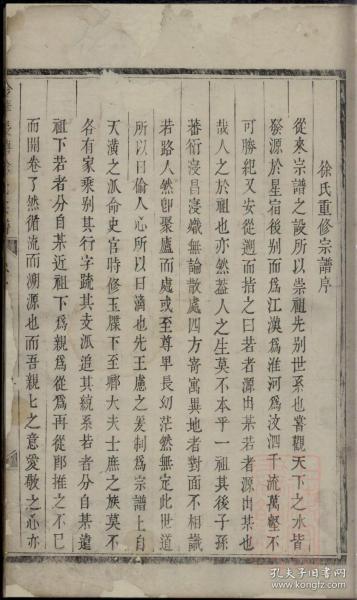 徐氏重修宗譜序
從來宗譜之設所以崇祖先别世系也嘗觀天下之水皆
發源於星宿後别而為江漢為淮河為汶泗千流萬壑不
可勝紀又安從遡而皆之曰若者源出某若者源出某也
哉人之於祖也亦然蓋人之生莫不本乎一祖其後子孫
蕃衍寖昌寖熾無論散處四方寄寓異地者對面不相識
若路人然即聚廬而處或至尊早長幼茫然無定此世道
所以日偷人心所以日漓也先王慮之爰制為宗譜上自
天潢之派命史官時修玉牒下至鄉大夫士庶之族莫不
各有家乘别其行字䟽其支派追其統系若者分自某遠
祖下若者分自某近祖下為親為從為再從即推之不巳
而開卷了然循流而溯源也而吾親七之意愛敬之心亦
孔夫子旧书网